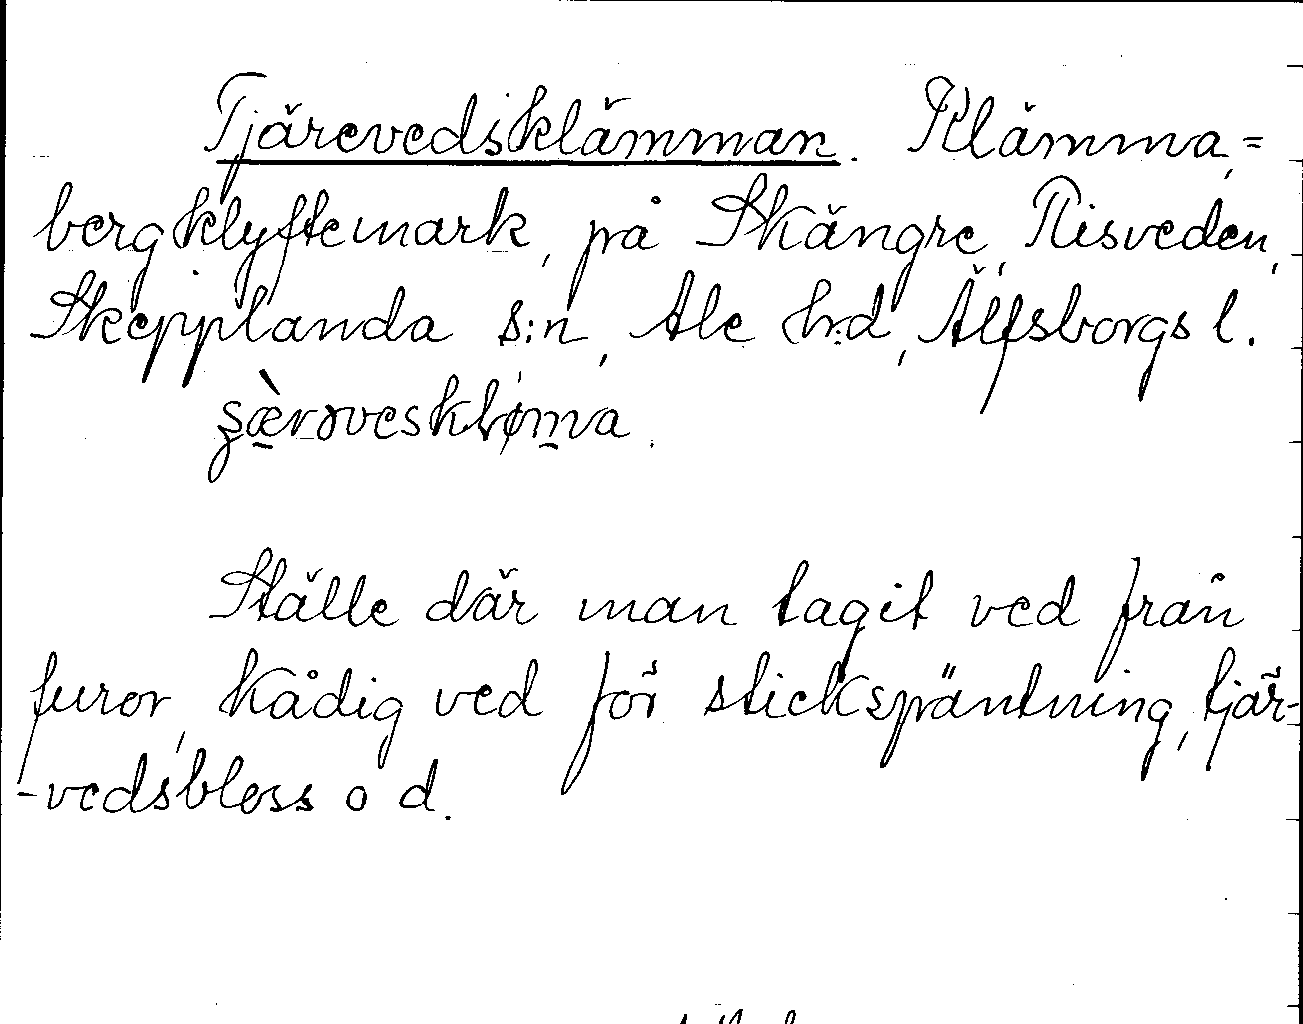 Tjärevedsklämman. Klämma,=
bergklyftemark, på Skängre, Risveden,
Skepplanda s:n, Ale h:d, Älfsborgs l.
Ställe där man tagit ved från
furor, kådig ved för stickspäntning, tjär-
-vedsbloss o d.